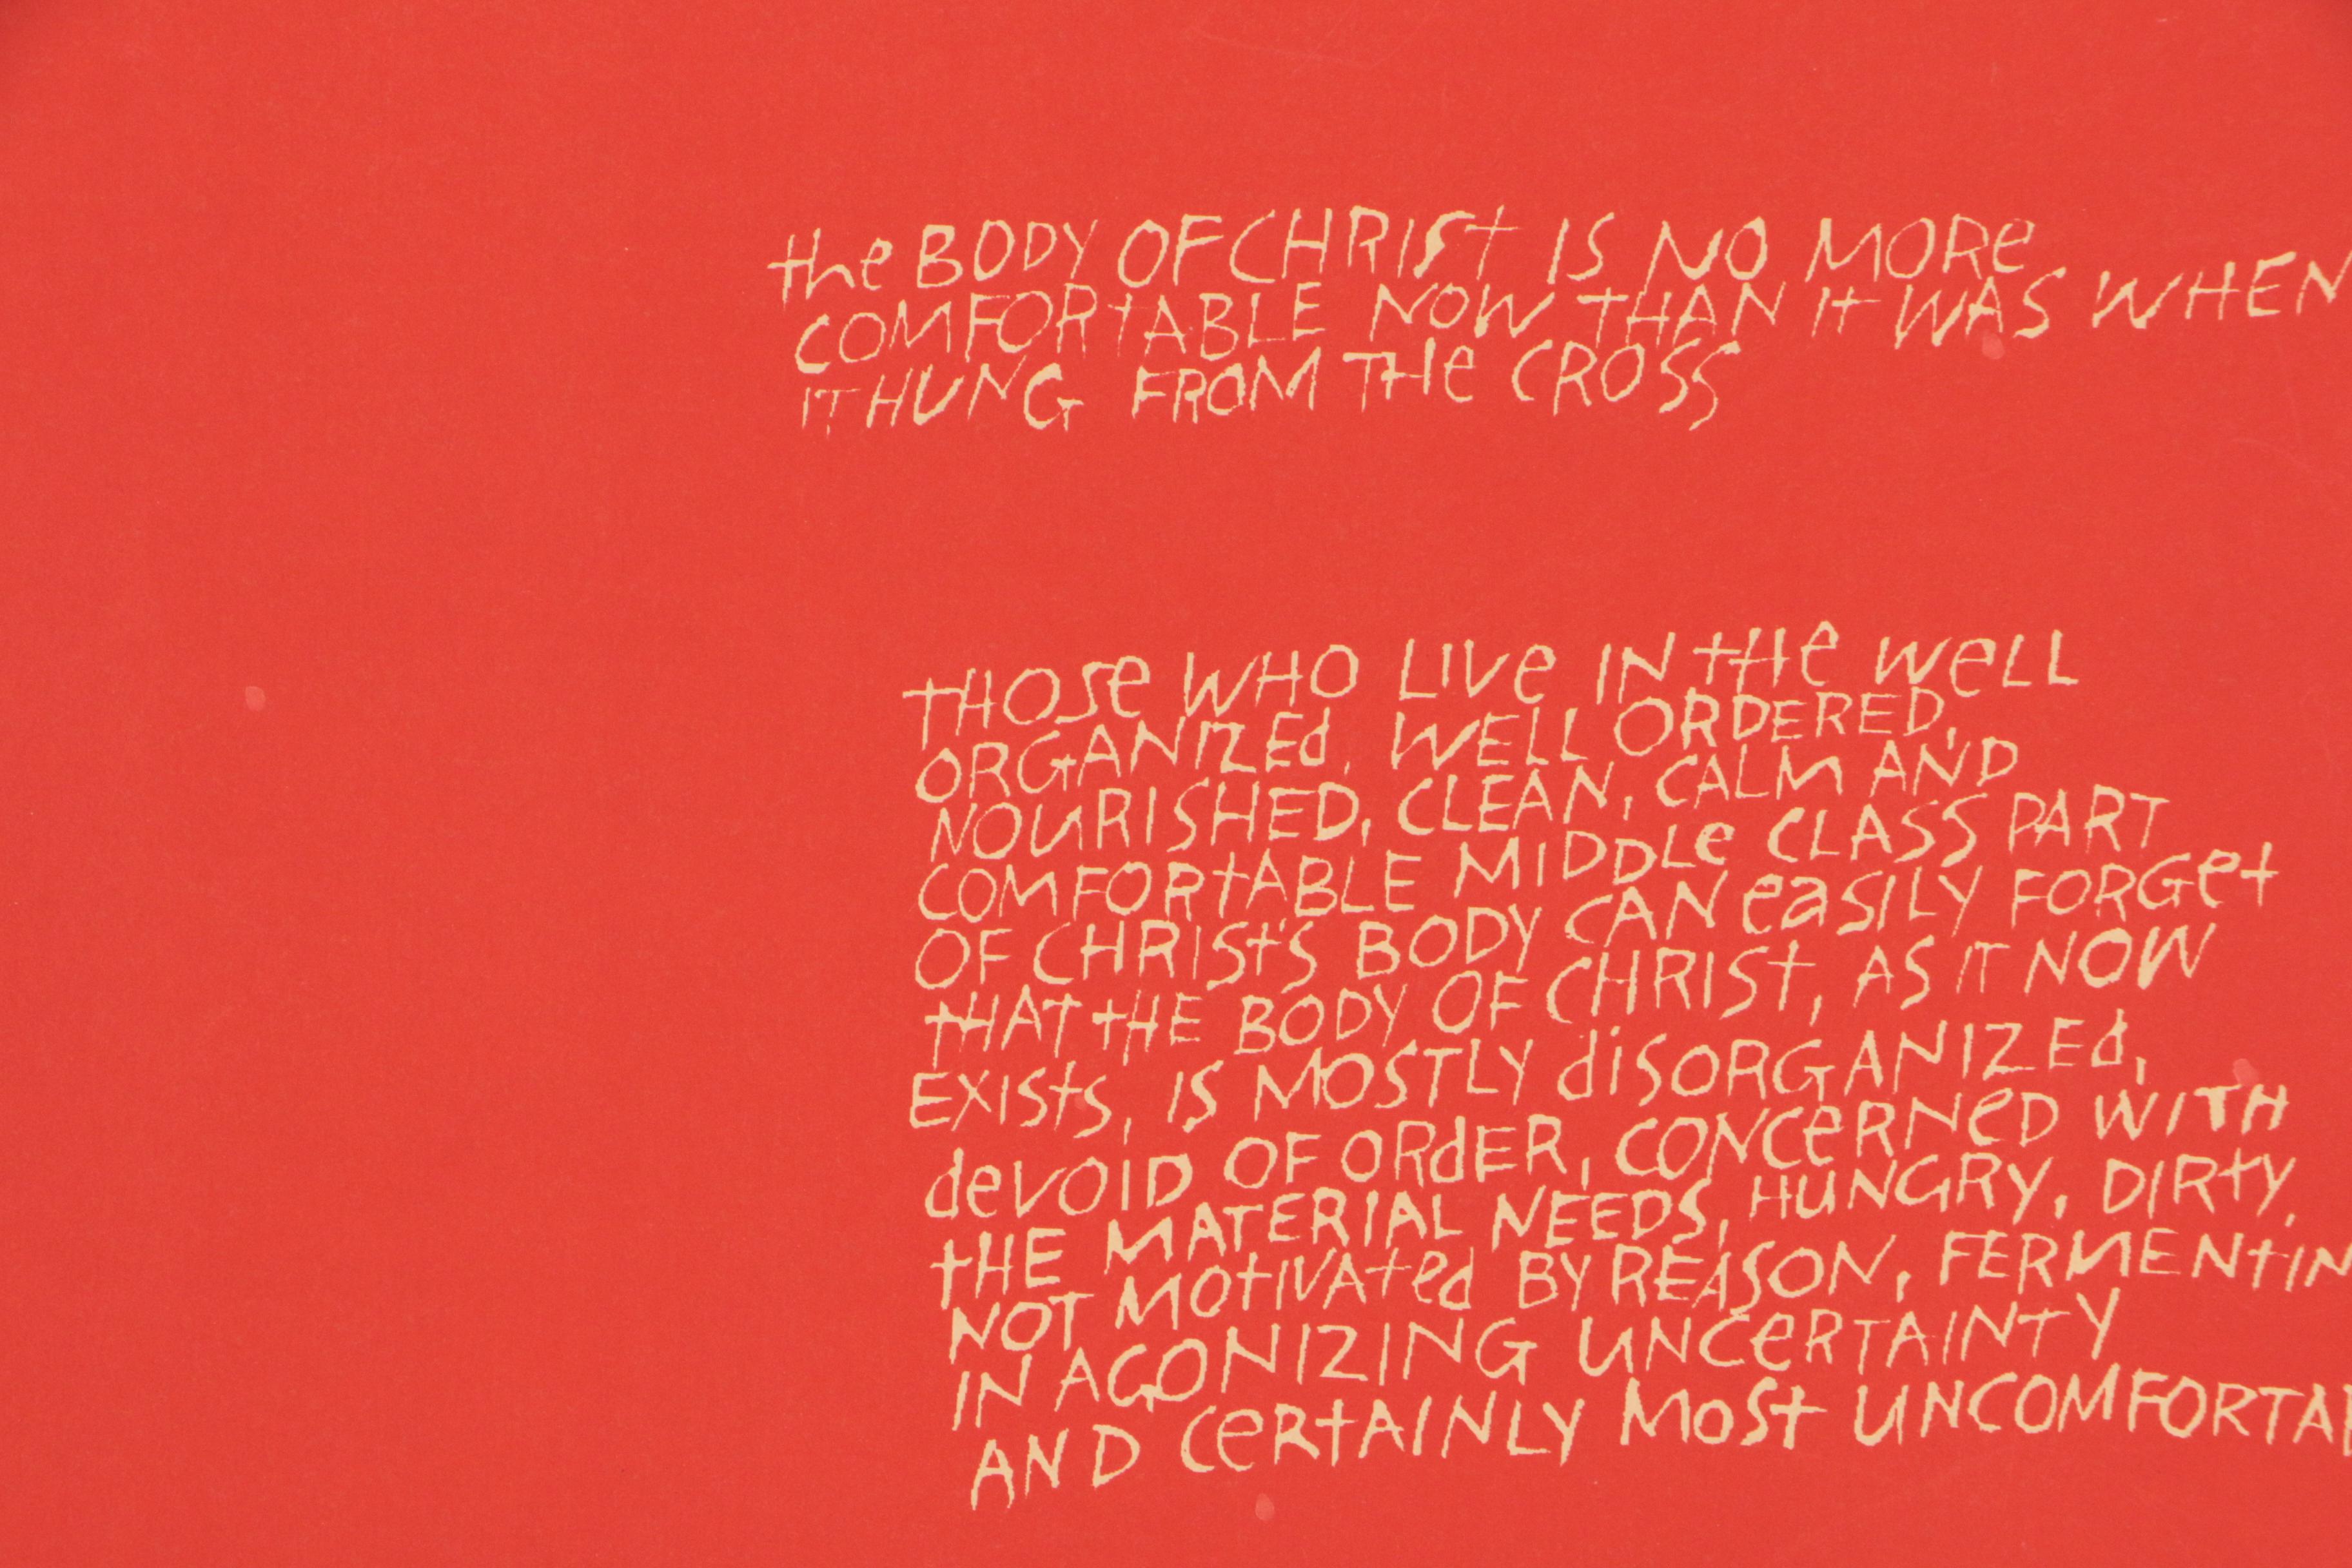 the BODY OF CHRISt IS NO MORe
COMFORtABLE NOW tHAN It WAS WHEN
IT HUNG FROM THe CROSS
tHOSe WHO LIVe IN tHe WeLL
ORGANIZEd, WELL ORDERED,
NOURISHED, CLEAN, CALM AND
COMFORtABLE MIDDLe CLASS PART
OF CHRISt'S BODY CAN easILY FORGet
tHAT tHE BODY OF CHRISt, AS IT NOW
EXISts, IS MOSTLY diSORGANIZEd,
deVOID OF ORdER, CONCeRNeD WITH
tHE MATERIAL NEEDS, HUNGRY, DIRtY,
NOT MOtIVAted BY REASON, FERMENtIN
IN AGONIZING UNCeRTAINTY
AND CeRtAINLY MoSt UNCOMFORTAB